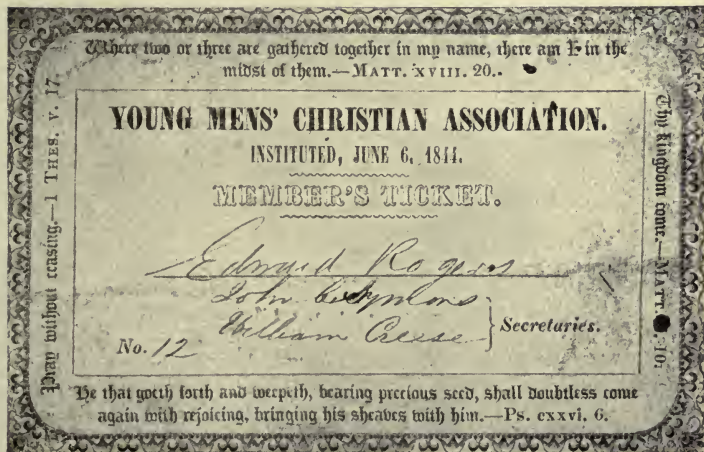 Where two or three are gathered together in my name, there am I in the
midst of them.—MATT. XVIII. 20..
Pray without ceasing.—1 THES. V. 17.
YOUNG MENS' CHRISTIAN ASSOCIATION.
INSTITUTED, JUNE 6, 1844.
MEMBER'S TICKET.
Edward Rogers
John C Symons
William Creese } Secretaries.
No. 12
Thy kingdom come.—MATT. 10.
He that goeth forth and weepeth, bearing precious seed, shall doubtless come
again with rejoicing, bringing his sheaves with him.—Ps. cxxvi. 6.